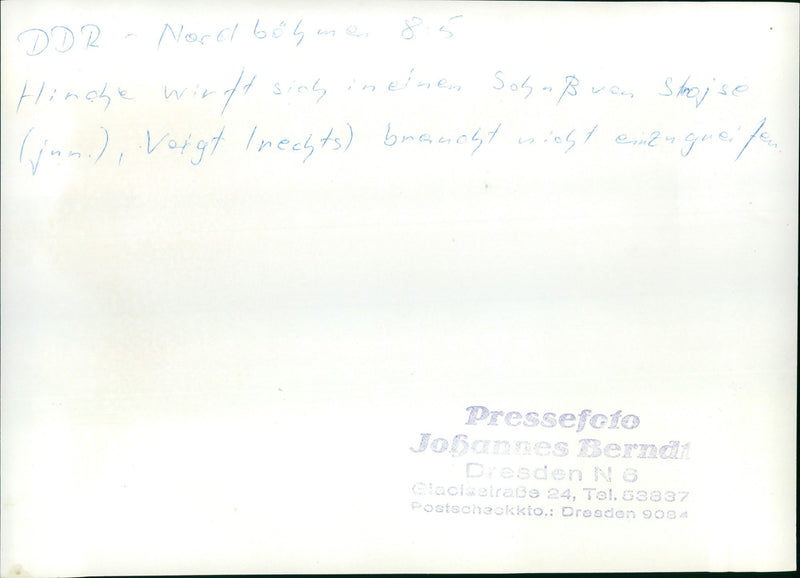 DDR - Nordböhmen 8:5
wirft sich in einen Schuß von
(jun.), Voigt (rechts) braucht nicht einzugreifen.
Pressefoto
Johannes Berndt
Dresden N 6
Glacisstraße 24, Tel. 53837
Postscheckkto.: Dresden 9084